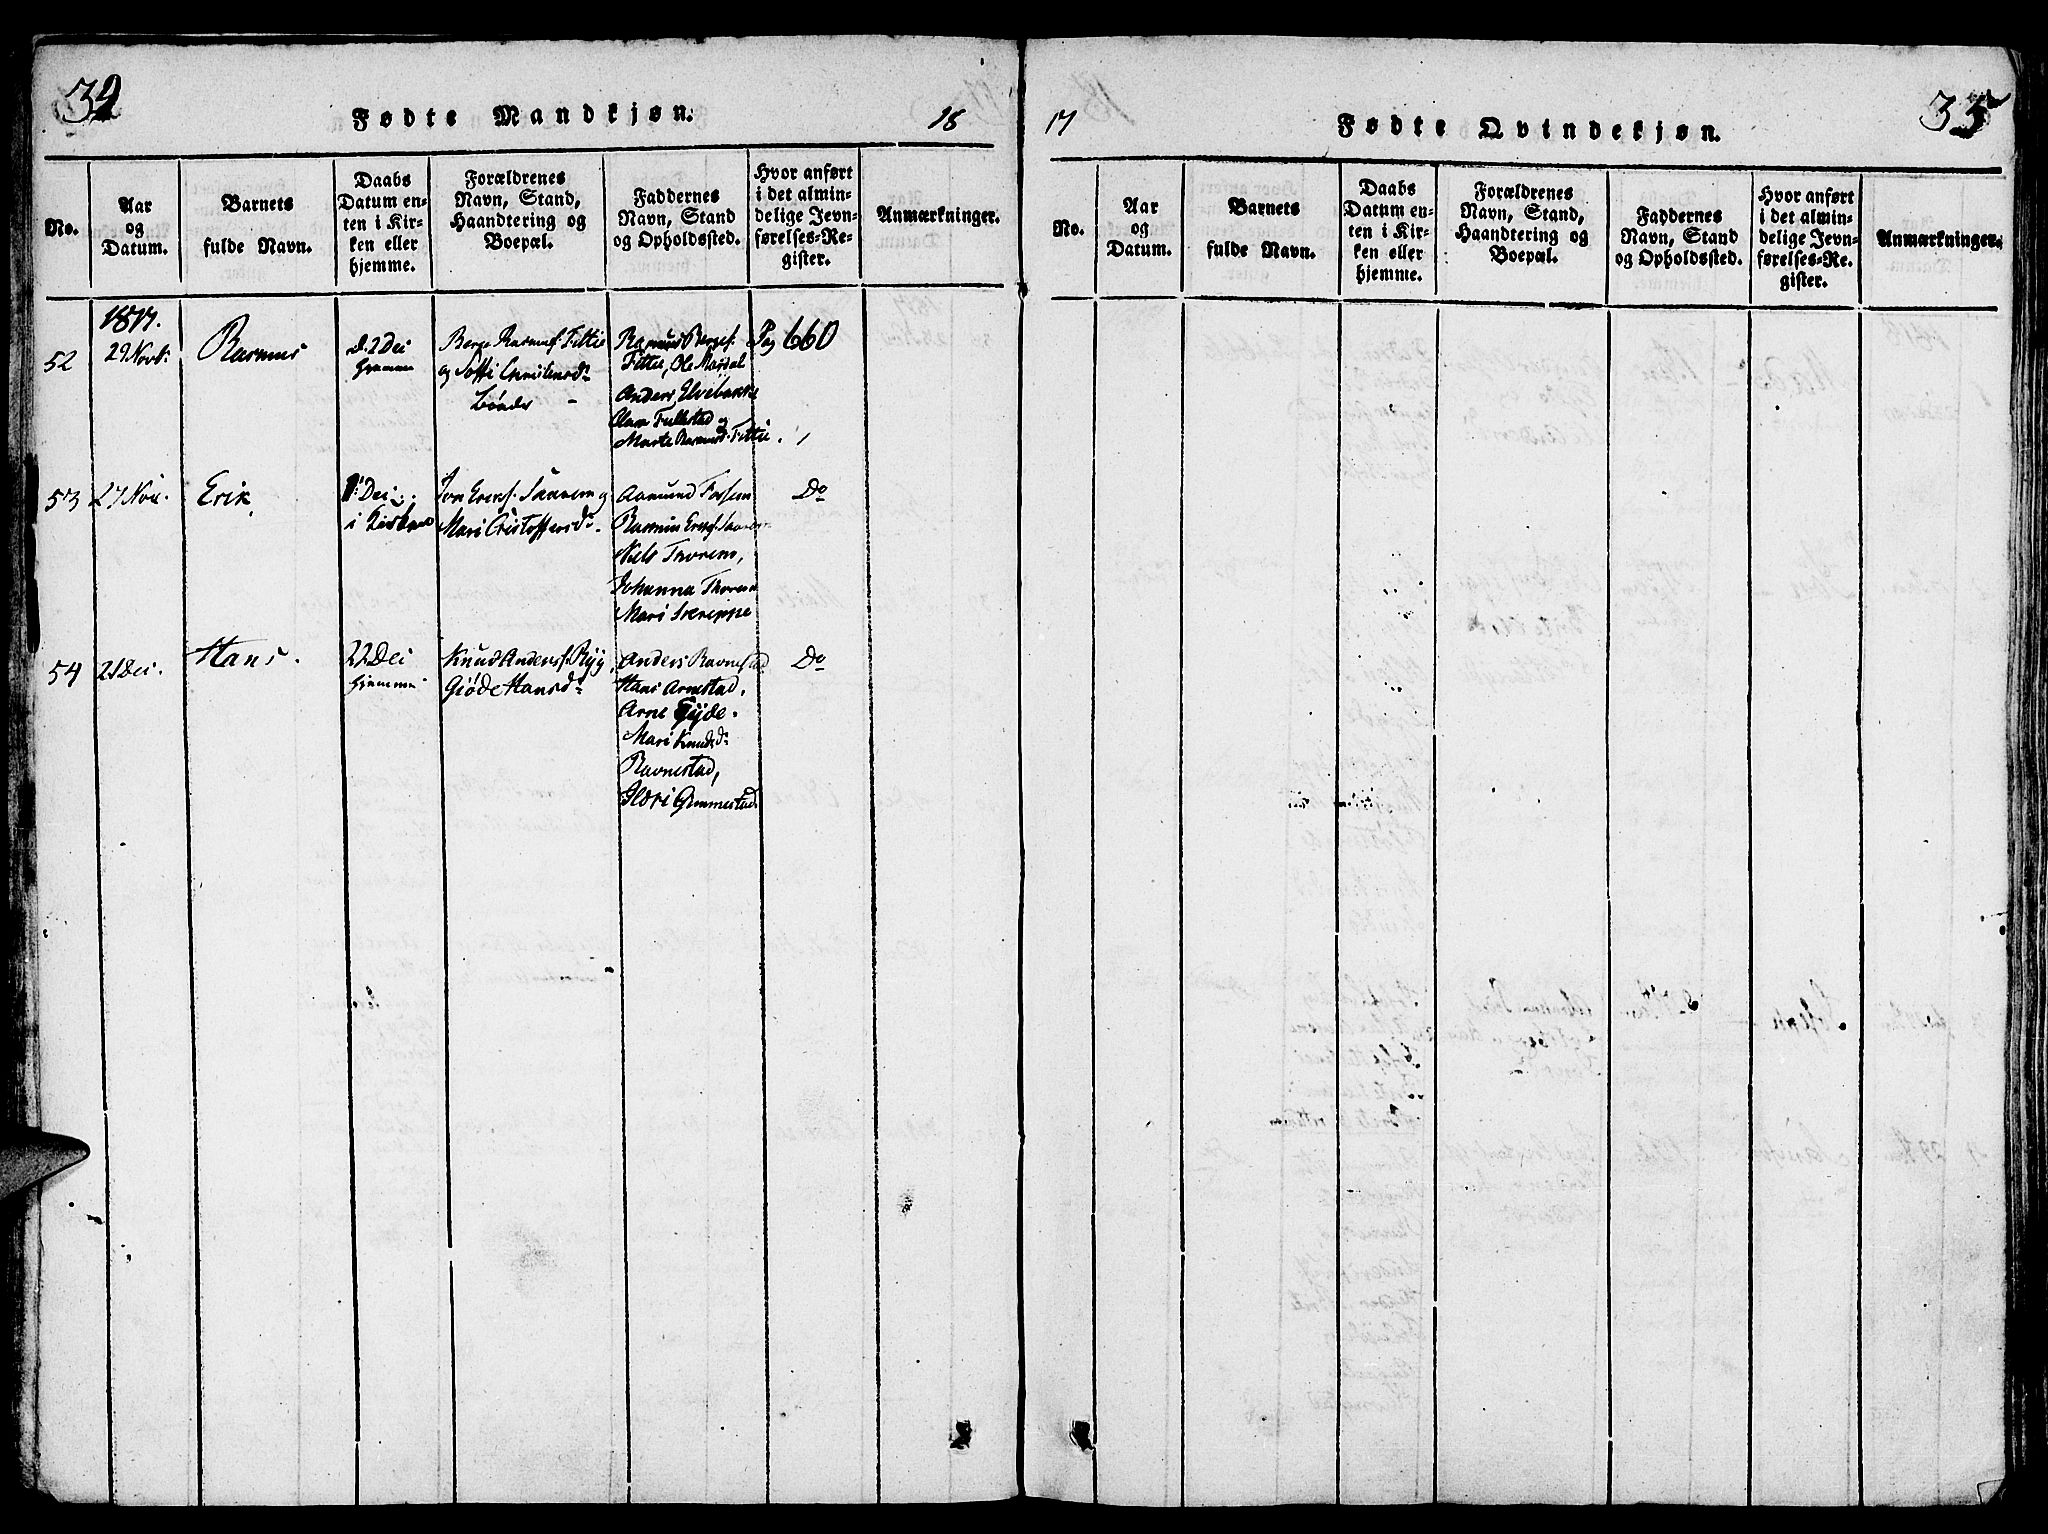 32
Fødte Mandkjøn.
18
No.
Aar
og
Datum.
Barnets
fulde Navn.
Daabs
Datum en-
ten i Kir-
ken eller
hjemme.
Forældrenes
Navn, Stand,
Haandtering og
Boepæl.
Faddernes
Navn, Stand
og Opholdssted.
Hvor anført
i det almin-
delige Jevn-
førelses-Re-
gister.
Anmærkninger.
1817.
52
29 Novb:
Rasmus
d. 2 Dei
hjemme
Berge Rasmus: Fittie
og Søffi Christensd:
Bönder
Rasmus Berges:
Fittie, Ole Maasal
Anders Elvebakke
Olave Fullestad og
Marte Rasmusd: Fittie.
Pag 660
53
27 Nov.
Erik
1: Dei
i Kirken
Iver Erics: Saanem og
Mari Cristoffersd:
Aamund Fosem
Rasmus Erics:
Niels Thorem,
Johanna Thorem
Mari Skreppe
Do
54
21 Dei.
Hans.
22 Dei
hjemme
Knud Anders: Ryg
Giøde Hansd:
Anders Ravnestad
Hans Arnestad,
Arne Eyde.
Mari Knudsd:
Ravnestad,
Ildri Gimmestad
Do
17
Fødte Qvindekjøn.
35
No.
Aar
og
Datum.
Barnets
fulde Navn.
Daabs
Datum en-
ten i Kir-
ken eller
hjemme.
Forældrenes
Navn, Stand,
Haandtering og
Boepæl.
Faddernes
Navn, Stand
og Opholdssted.
Hvor anført
i det almin-
delige Jevn-
førelses-Re-
gister.
Anmærkninger.